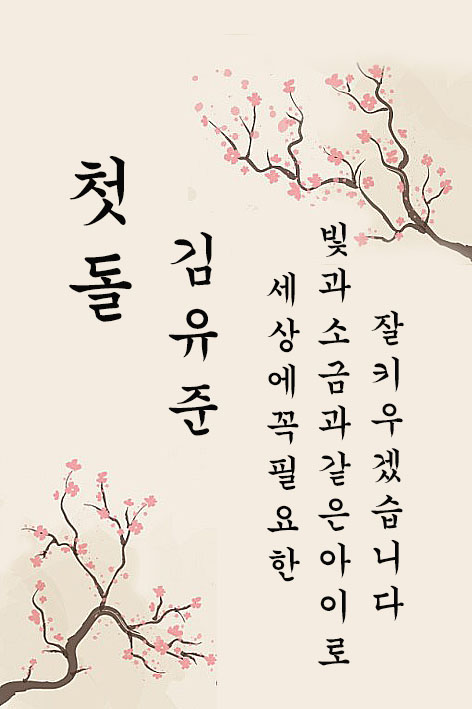 첫돌
김유준
세상에꼭필요한
빛과소금과같은아이로
잘키우겠습니다